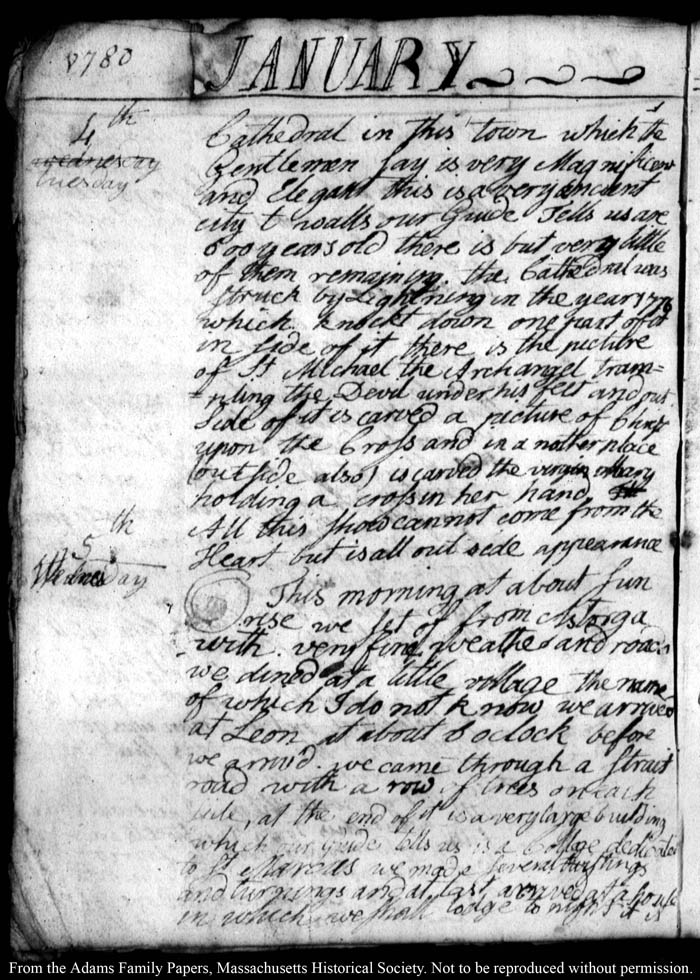 1780
JANUARY
4th
wednesday
tuesday
Cathedral in this town which the
Gentlemen say is very Magnificent
and Elegant this is a very ancient
city walls our Guide Tells us are
600 years old there is but very little
of them remaining. the Cathedral was
struck by Lightning in the year
which knockt down one part of it
in side of it there is the picture
of St Michael the Archangel tram=
=pling the Devil under his feet and out
side of it is carved a picture of Christ
upon the Cross and in a nother place
(outside also) is carved the virgin mary
holding a cross in her hand
All this show cannot come from the
Heart but is all out side appearance
5th
Wednesday
This morning at about sun
rise we set of from Astorga
with very fine weather and roads
we dined at a little village the name
of which I do not know we arrived
at Leon at about 6 oclock before
we arrivd we came through a strait
road with a row of trees on each
side, at the end of it is a very large building
which our guide tells us is a Collage dedicated
to St Marcus we made several twistings
and turnings and at last arrived at a house
in which we shall lodge to night it is
From the Adams Family Papers, Massachusetts Historical Society. Not to be reproduced without permission.